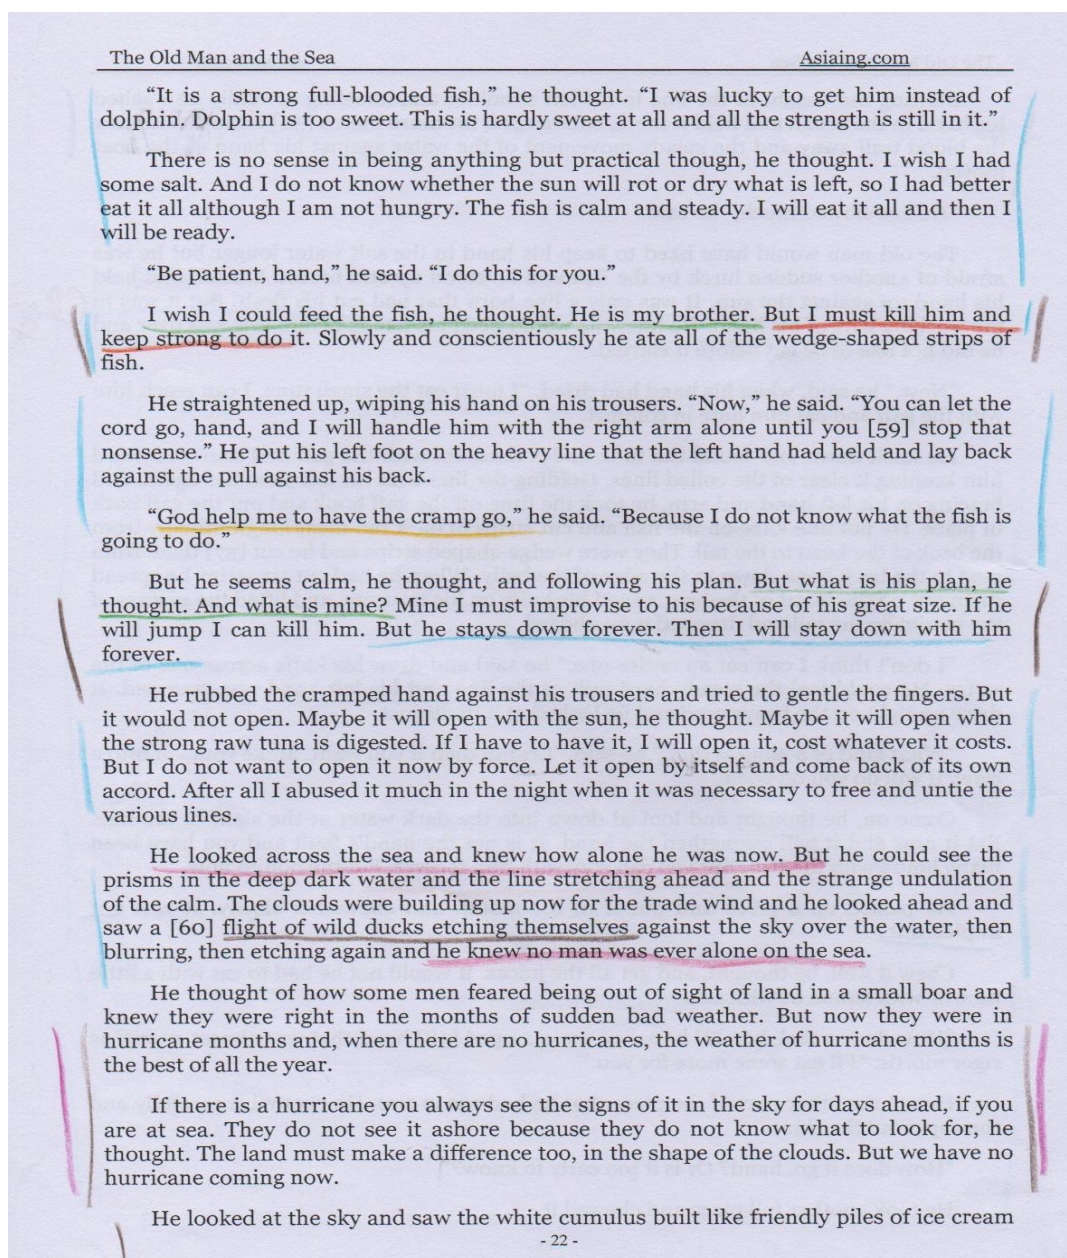 The Old Man and the Sea Asiaing.com
“It is a strong full-blooded fish,” he thought. “I was lucky to get him instead of
dolphin. Dolphin is too sweet. This is hardly sweet at all and all the strength is still in it.”
There is no sense in being anything but practical though, he thought. I wish I had
some salt. And I do not know whether the sun will rot or dry what is left, so I had better
eat it all although I am not hungry. The fish is calm and steady. I will eat it all and then I
will be ready.
“Be patient, hand,” he said. “I do this for you.”
I wish I could feed the fish, he thought. He is my brother. But I must kill him and
keep strong to do it. Slowly and conscientiously he ate all of the wedge-shaped strips of
fish.
He straightened up, wiping his hand on his trousers. “Now,” he said. “You can let the
cord go, hand, and I will handle him with the right arm alone until you [59] stop that
nonsense.” He put his left foot on the heavy line that the left hand had held and lay back
against the pull against his back.
“God help me to have the cramp go,” he said. “Because I do not know what the fish is
going to do.”
But he seems calm, he thought, and following his plan. But what is his plan, he
thought. And what is mine? Mine I must improvise to his because of his great size. If he
will jump I can kill him. But he stays down forever. Then I will stay down with him
forever.
He rubbed the cramped hand against his trousers and tried to gentle the fingers. But
it would not open. Maybe it will open with the sun, he thought. Maybe it will open when
the strong raw tuna is digested. If I have to have it, I will open it, cost whatever it costs.
But I do not want to open it now by force. Let it open by itself and come back of its own
accord. After all I abused it much in the night when it was necessary to free and untie the
various lines.
He looked across the sea and knew how alone he was now. But he could see the
prisms in the deep dark water and the line stretching ahead and the strange undulation
of the calm. The clouds were building up now for the trade wind and he looked ahead and
saw a [60] flight of wild ducks etching themselves against the sky over the water, then
blurring, then etching again and he knew no man was ever alone on the sea.
He thought of how some men feared being out of sight of land in a small boar and
knew they were right in the months of sudden bad weather. But now they were in
hurricane months and, when there are no hurricanes, the weather of hurricane months is
the best of all the year.
If there is a hurricane you always see the signs of it in the sky for days ahead, if you
are at sea. They do not see it ashore because they do not know what to look for, he
thought. The land must make a difference too, in the shape of the clouds. But we have no
hurricane coming now.
He looked at the sky and saw the white cumulus built like friendly piles of ice cream
- 22 -